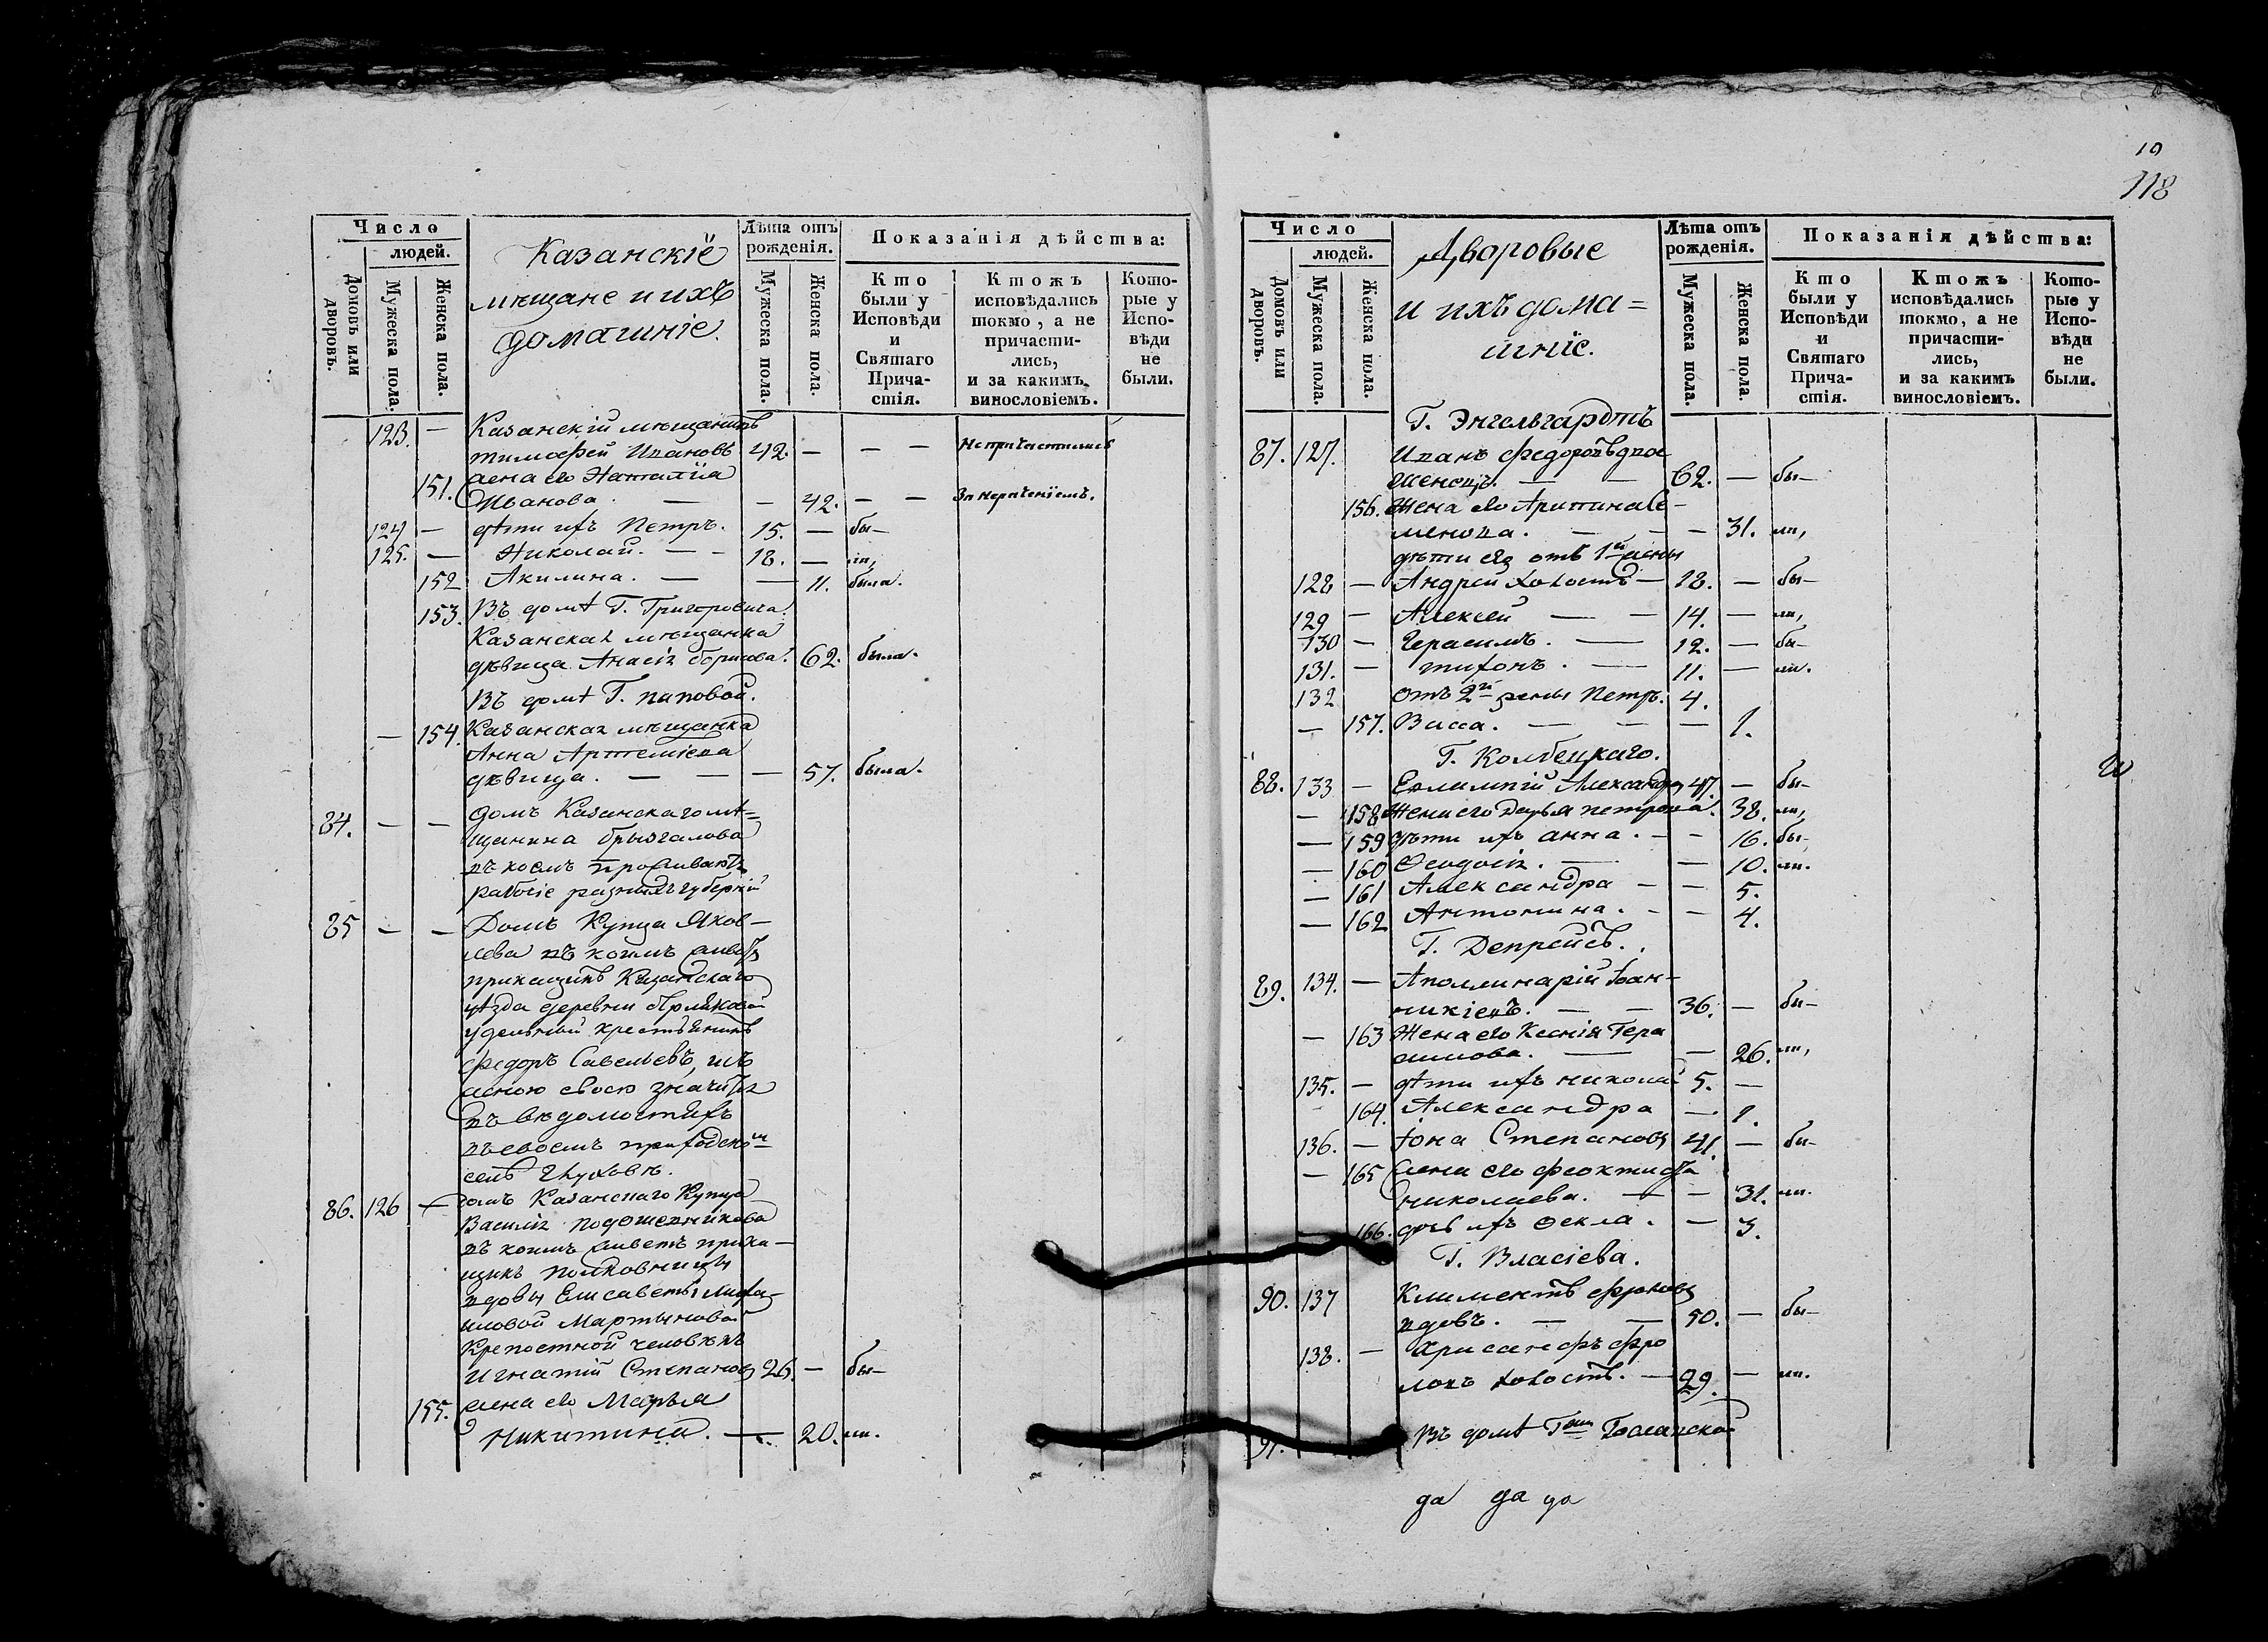 Число
людей.
Домовъ или дворовъ.
Мужеска пола.
Женска пола.
Казанскiе
мѣщане и ихъ
домашнiе.
Лѣта отъ рожденiя.
Мужеска пола.
Женска пола.
Показанiя дѣйства:
Кто были у Исповѣди и Святаго Причастiя.
Ктожъ исповѣдались токмо, а не причастились, и за какимъ винословiемъ.
Которые у Исповѣди не были.
123. — Казанскiй мѣщанинъ
Тимофей Ивановъ 42. — — — Не причастились
151. жена его Наталiя
Иванова. — — 42. — — За нераченiемъ.
124 — дѣти ихъ Петръ. 15. — бы—
125. — Николай. — — 18. — ли,
152 Акилина. — — 11. была.
153. Въ домѣ Г. Григоровича.
Казанская мѣщанка
дѣвица Анасiя Борисова. 62. была.
Въ домѣ Г. Паповой.
— 154. Казанская мѣщанка
Анна Артемiева
дѣвица. — — — 57. была.
84. — — Домъ Казанскаго мѣ=
щанина Брызгалова
въ коемъ проживаютъ
рабочiе разныхъ губернiй
85 — — Домъ Купца Яков—
лева въ коемъ живетъ
прикащикъ Казанскаго
уѣзда деревни
удельный крестьянинъ
Федоръ Савельевъ, и съ
женою своею значится
въ вѣдомостяхъ
въ своемъ приходскомъ
селѣ
86. 126 — домъ Казанскаго Купца
Василiя Подошевникова
въ коемъ живетъ прика—
щикъ полковницы
вдовы Елисаветы Миха
иловой Мартыновой
Крепостной человѣкъ
Игнатiй Степановъ 26. — бы—
155. жена его Марья
Никитина. — 20. ли.
19
118
Число
людей.
Домовъ или дворовъ.
Мужеска пола.
Женска пола.
Дворовые
и ихъ дома=
шнiе.
Лѣта отъ рожденiя.
Мужеска пола.
Женска пола.
Показанiя дѣйства:
Кто были у Исповѣди и Святаго Причастiя.
Ктожъ исповѣдались токмо, а не причастились, и за какимъ винословiемъ.
Которые у Исповѣди не были.
Г. Энгельгардтъ
87. 127. Иванъ Федоровъ двое
женецъ. — — 62. — бы—
156. Жена его Арипина Се—
менова. — — — 31. ли,
дѣти ея отъ 1й жены
128 — Андрей холостъ — 18. — бы—
129 — Алексей — — 14. — ли,
130 — Герасимъ. — 12. — бы—
131. — Тихонъ. — 11. — ли.
132 Отъ 2й жены Петръ. 4.
— 157. Васса. — — — 1.
Г. Колбецкаго.
88. 133 — Евлампiй Александръ 47. — бы—
— 158 Жена его Дарья Петрова. 38. ли,
— 159 Дѣти ихъ Анна. — — 16. бы—
— 160 Феодосiя. — — 10. ли.
— 161 Александра — — 5.
— 162 Антонина. — — 4.
Г. Депрейсъ.
89. 134. — Аполлинарiй Iоан—
никiевъ. — — 36. — бы—
— 163 Жена его Ксенiя Гера
симова. — — 26. ли,
135. — дѣти ихъ Николай 5. —
164. Александра — 1.
136. — Iона Степановъ 41. — бы—
— 165 жена его Феоктиста
Николаева. — — 31. ли.
— 166. дочь ихъ Фекла. — 3.
Г. Власiева.
90. 137 Климентъ Фроловъ
вдовъ. — — 50. — бы—
138. — Хрисанфъ Фро
ловъ холостъ. — 29. — ли.
91. Въ домѣ Гжи
да да да